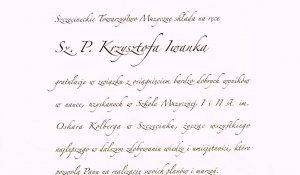 Szczecineckie Towarzystwo Muzyczne składa na ręce
Sz. P. Krzysztofa Iwanka
gratulacje w związku z osiągnięciem bardzo dobrych wyników
w nauce, uzyskanych w Szkole Muzycznej I i II st. im.
Oskara Kolberga w Szczecinku, życząc wszystkiego
najlepszego w dalszym zdobywaniu wiedzy i umiejętności, które
pozwolą Panu na realizację swoich planów i marzeń.